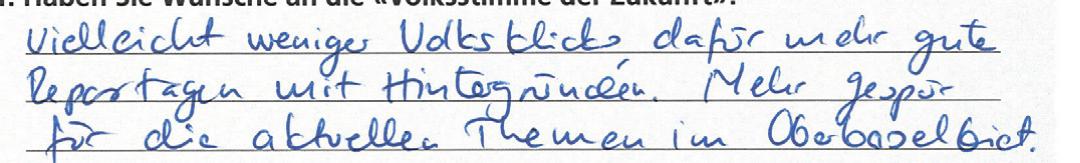 1. Haben Sie Wünsche an die «Volksstimme der Zukunft»?
Vielleicht weniger Volksklicks dafür mehr gute
Reportagen mit Hintergründen. Mehr gespür
für die aktuellen Themen im Oberbaselbiet.